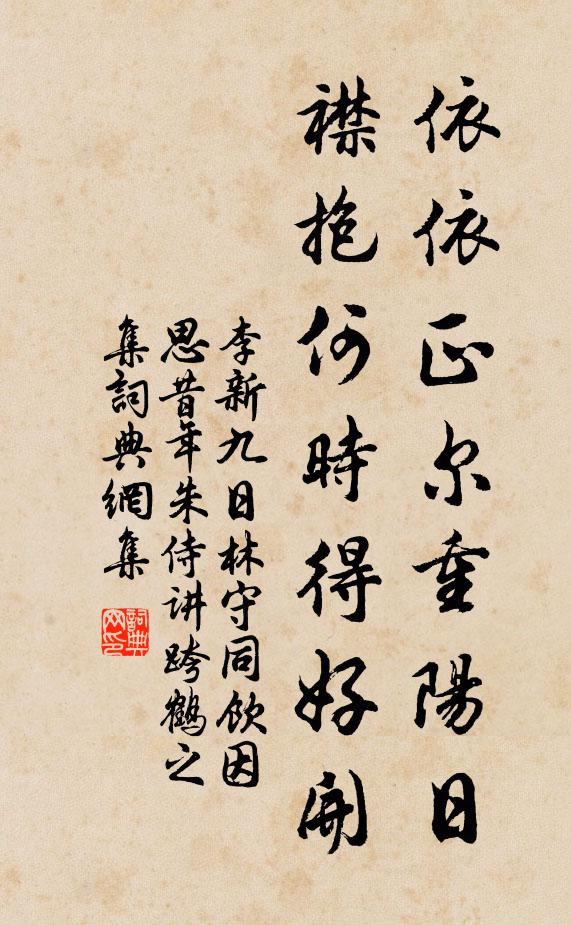 依依正尔重陽日
襟抱何時得好開
李新九日林守同飲因
思昔年朱侍讲跨鶴之
集詞典網集
詞典网印